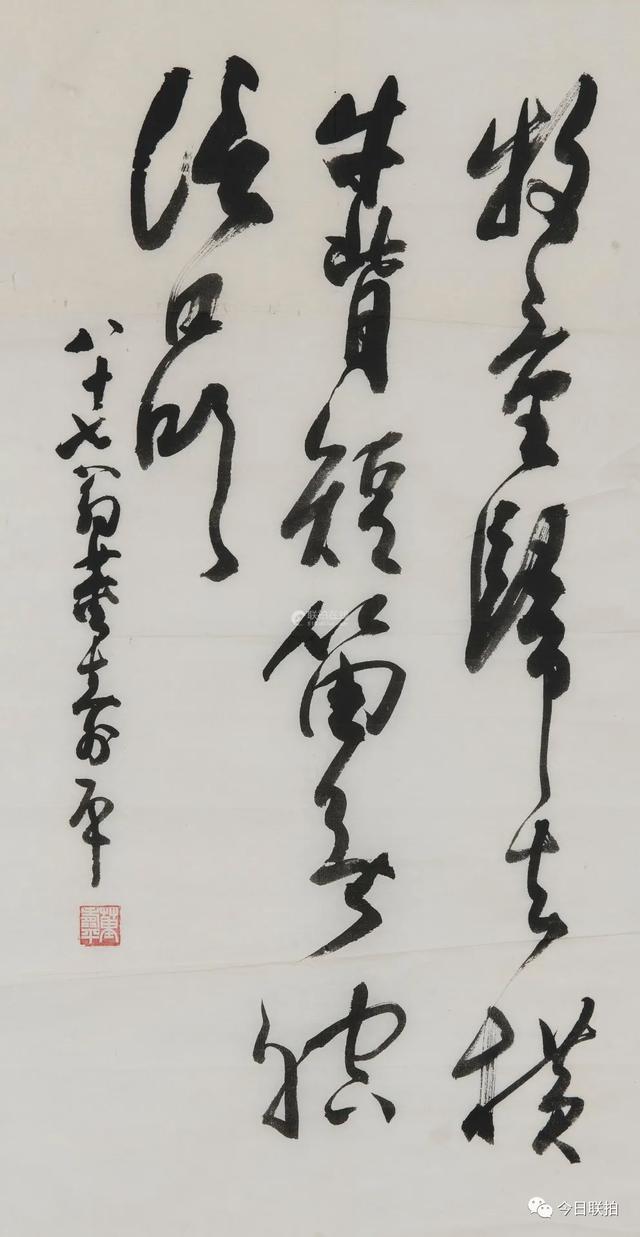 牧童歸去横
牛背短笛無腔
信口吹
八十七翁董壽平
董壽平
联拍在线
今日联拍